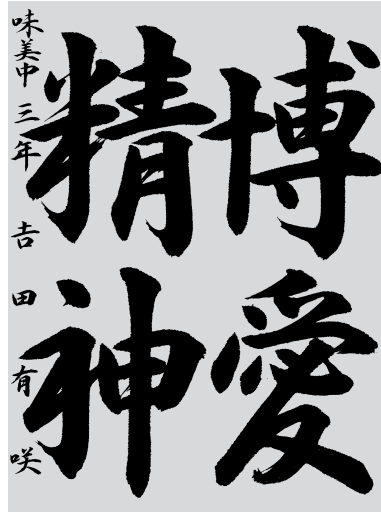 博愛
精神
味美中三年 吉田有咲